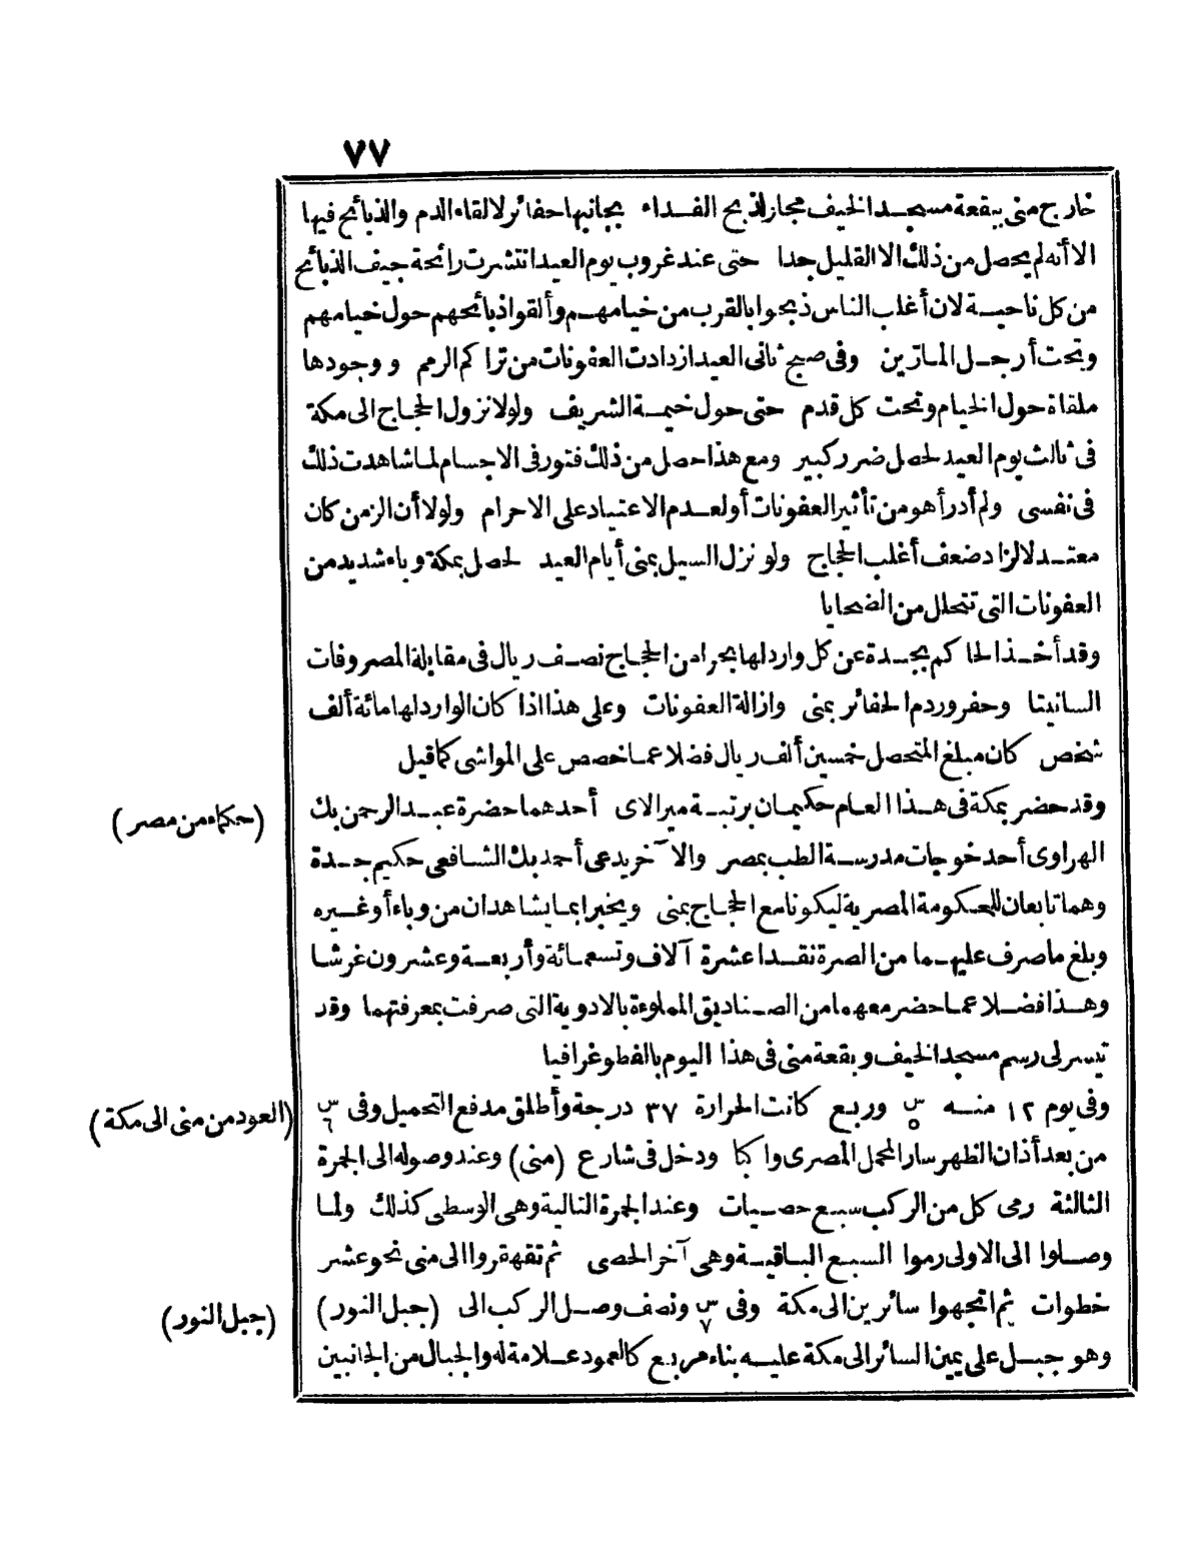 ٧٧
خارج منى ببقعة مسجد الخيف مجازر لذبح الفداء بجانبها حفائر لالقاء الدم والذبائح فيها
الا أنه لم يحصل من ذلك الا القليل جدا حتى عند غروب يوم العيد انتشرت رائحة جيف الذبائح
من كل ناحية لان أغلب الناس ذبحوا بالقرب من خيامهم وألقوا ذبائحهم حول خيامهم
وتحت أرجل المارّين وفى صبح ثانى العيد ازدادت العفونات من تراكم الرمم و وجودها
ملقاة حول الخيام وتحت كل قدم حتى حول خيمة الشريف ولولا نزول الحجاج الى مكة
فى ثالث يوم العيد لحصل ضرر كبير ومع هذا حصل من ذلك فتور فى الاجسام لما شاهدت ذلك
فى نفسى ولم أدر أهو من تأثير العفونات أو لعدم الاعتياد على الاحرام ولولا أن الزمن كان
معتدلا لزاد ضعف أغلب الحجاج ولو نزل السيل بمنى أيام العيد لحصل بمكة وباء شديد من
العفونات التى تتحلل من الضحايا
وقد أخذ الحاكم بجدة عن كل وارد لها بحرا من الحجاج نصف ريال فى مقابلة المصروفات
السانيتا وحفر وردم الحفائر بمنى وازالة العفونات وعلى هذا اذا كان الوارد لها مائة ألف
شخص كان مبلغ المتحصل خمسين ألف ريال فضلا عما خصص على المواشى كما قيل
وقد حضر بمكة فى هذا العام حكيمان برتبة ميرالاى أحدهما حضرة عبد الرحمن بك
(حكماء من مصر)
الهراوى أحد خوجات مدرسة الطب بمصر والآخر يدعى أحمد بك الشافعى حكيم جدة
وهما تابعان للحكومة المصرية ليكونا مع الحجاج بمنى ويخبرا بما يشاهدان من وباء أو غيره
وبلغ ما صرف عليهما من الصرة نقدا عشرة آلاف وتسعمائة وأربعة وعشرون غرشا
وهذا فضلا عما حضر معهما من الصناديق المملوءة بالادوية التى صرفت بمعرفتهما وقد
تيسر لى رسم مسجد الخيف وبقعة منى فى هذا اليوم بالفطوغرافيا
وفى يوم ١٢ منه س ٥ وربع كانت الحرارة ٣٧ درجة وأطلق مدفع التحميل وفى س ٦
(العود من منى الى مكة)
من بعد أذان الظهر سار المحمل المصرى واكبا ودخل فى شارع (منى) وعند وصوله الى الجمرة
الثالثة رمى كل من الركب سبع حصيات وعند الجمرة التالية وهى الوسطى كذلك ولما
وصلوا الى الاولى رموا السبع الباقية وهى آخر الحصى ثم تقهقروا الى منى نحو عشر
خطوات ثم اتجهوا سائرين الى مكة وفى س ٧ ونصف وصل الركب الى (جبل النور)
(جبل النور)
وهو جبل على يمين السائر الى مكة عليه بناء مربع كالعمود علامة له والجبال من الجانبين